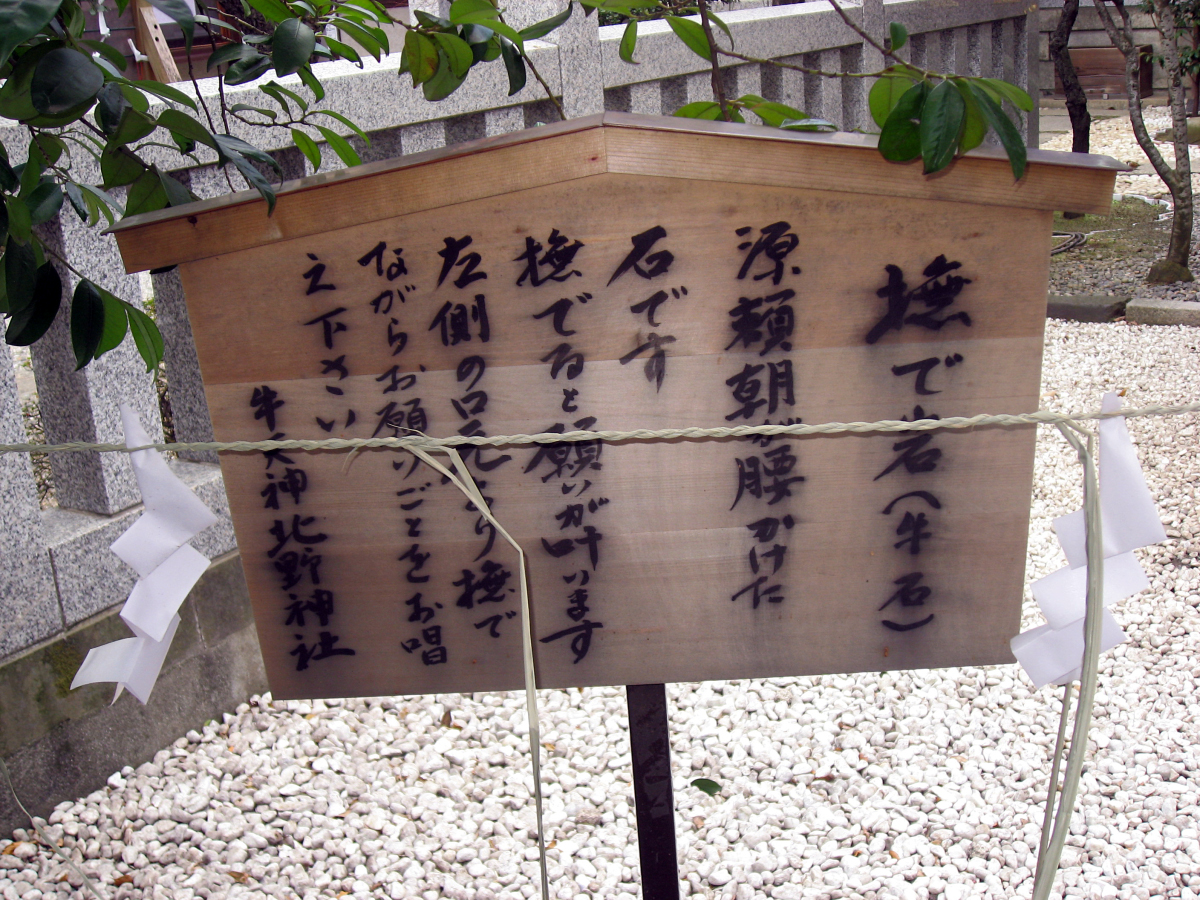 撫で岩(牛石)
源頼朝が腰かけた
石です
撫でると願いが叶います
左側の口元より撫で
ながらお願いごとをお唱
え下さい
牛天神北野神社